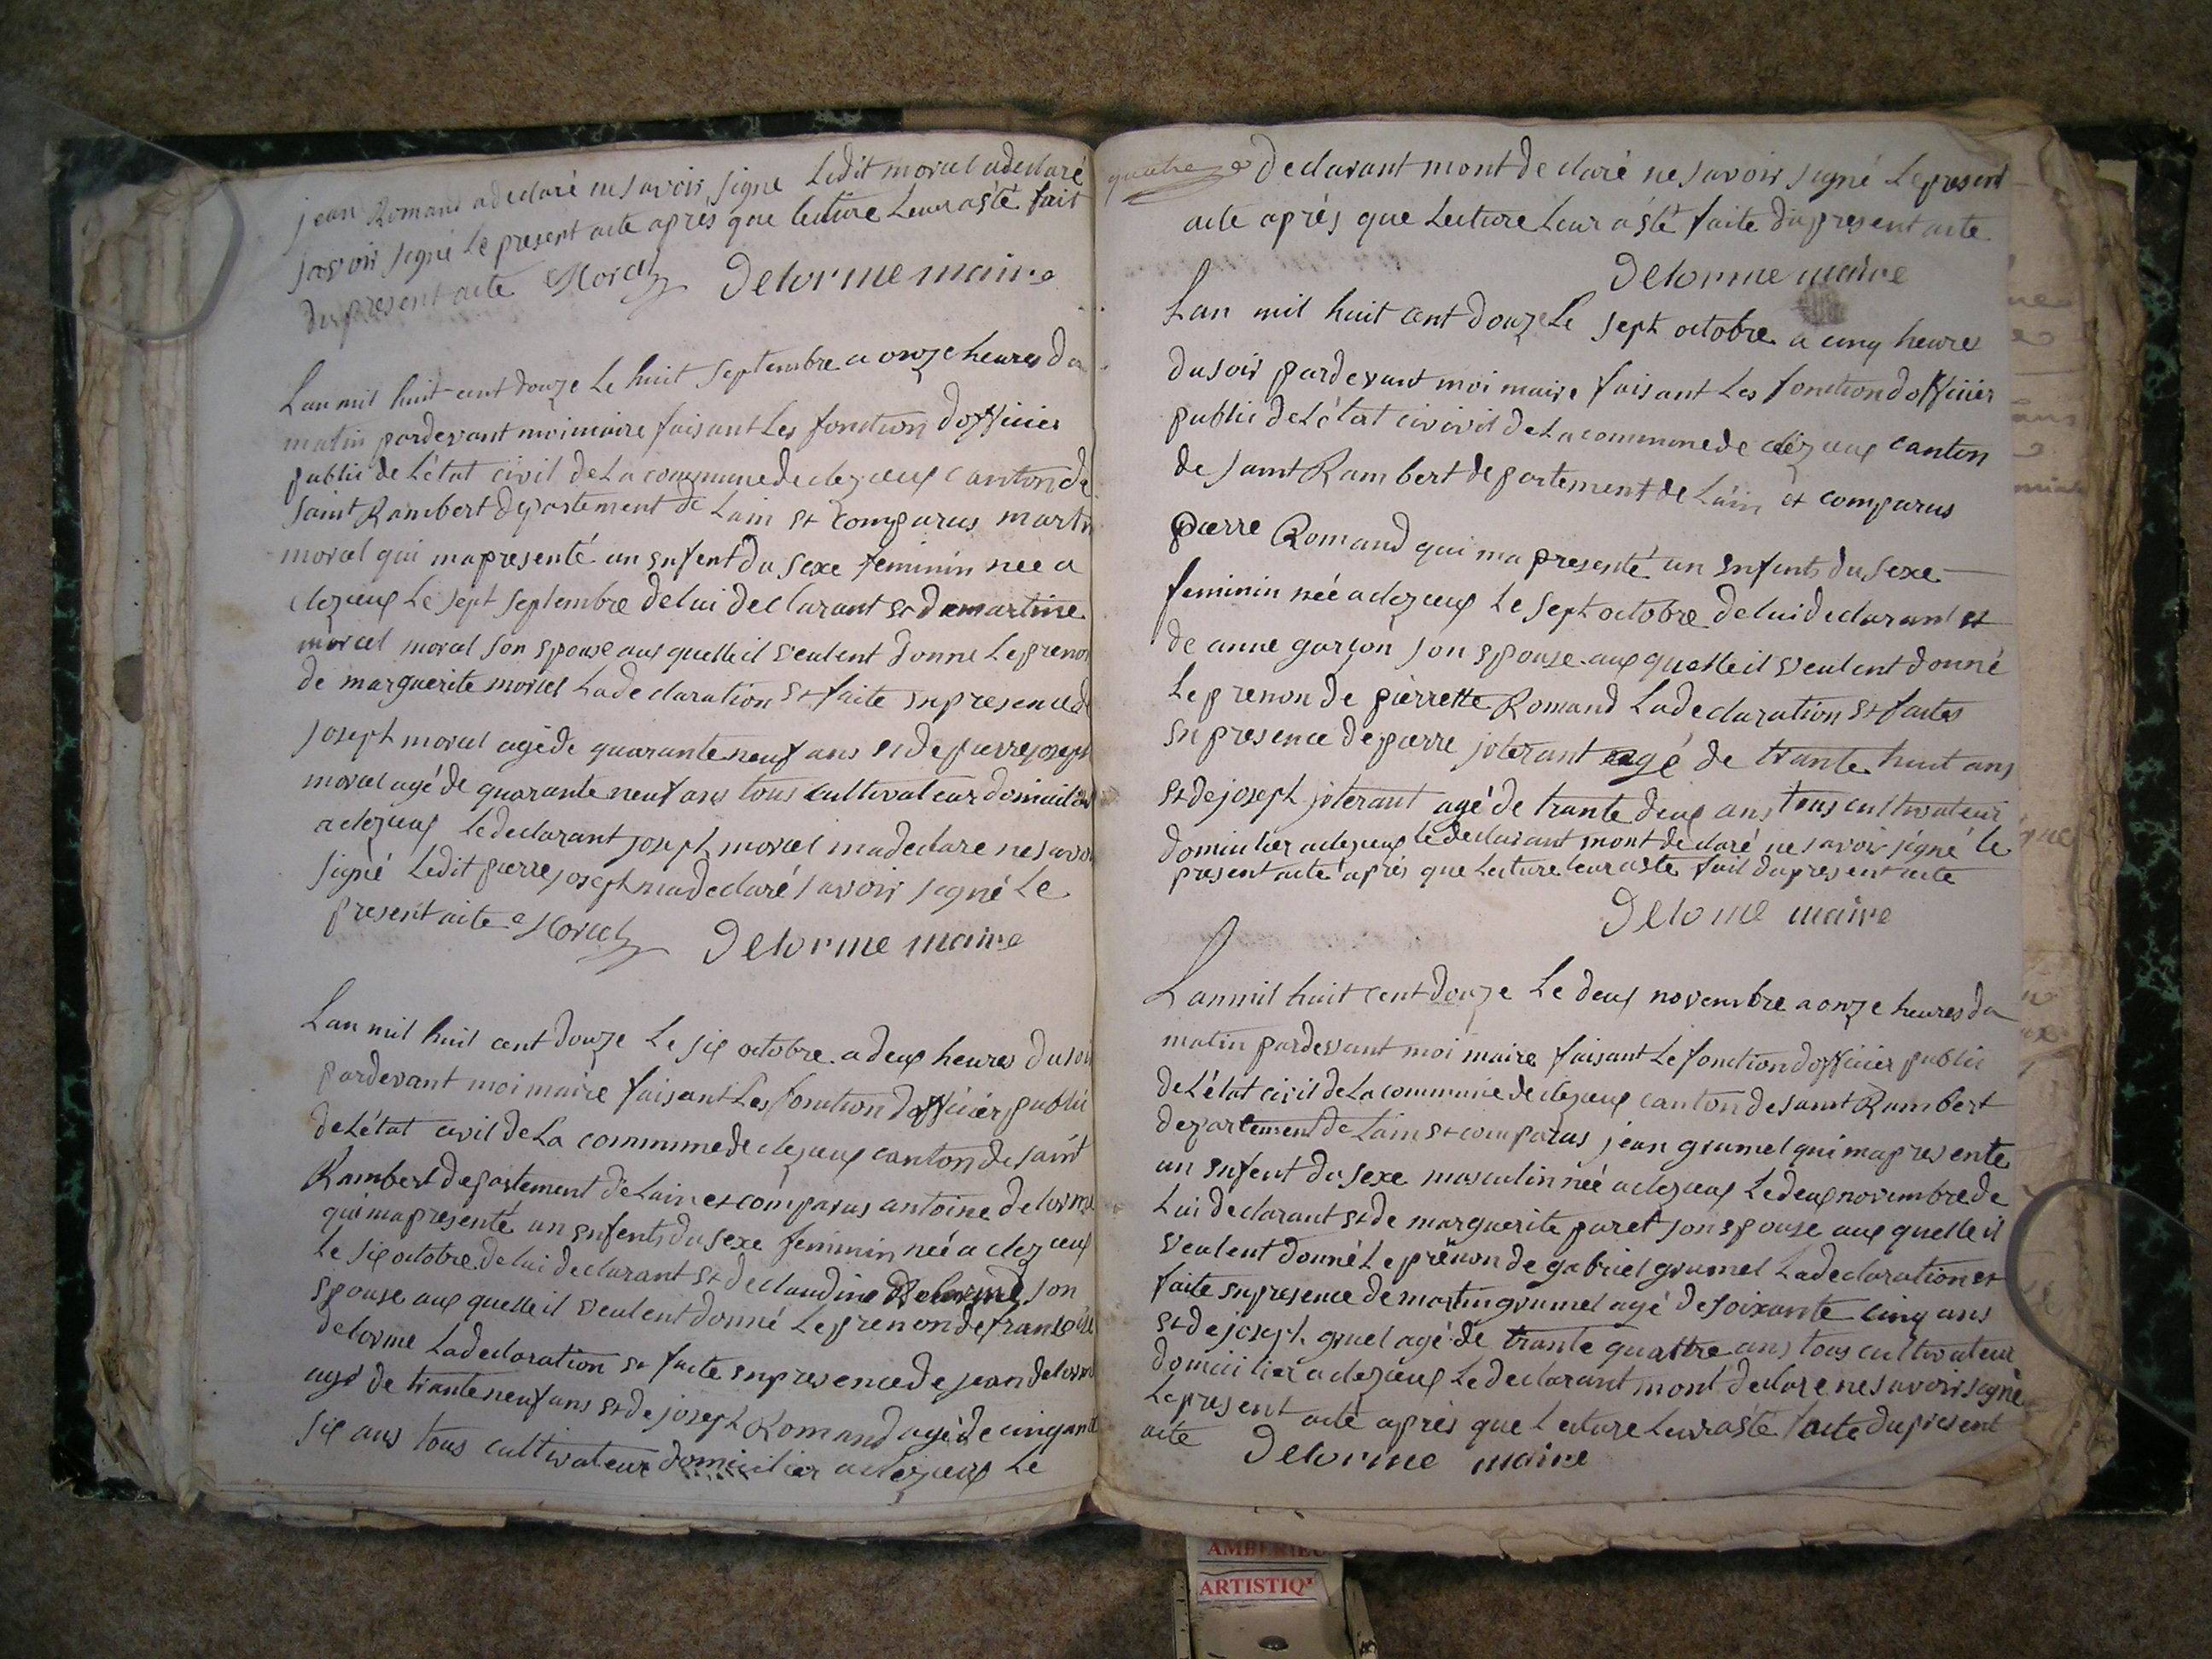 jean Romand a declaré ne savoir signe Ledit morel a declaré
savoir signé Le present acte aprés que lecture Leur asté fait
du present acte Morel Delorme maire
Lan mil huit cent douze Le huit septembre a onze heures du
matin pardevant moi maire faisant Les fonction dofficier
public de Létat civil de La commune de clezeux canton de
Saint Rambert departement de Lain et comparus martin
morel qui ma presenté un enfent du sexe feminin née a
clezeux Le sept septembre de lui declarant et de martine
morel morel son epouse aux quelle il veulent donné Le prenon
de marguerite morel La declaration et faite en presence de
joseph morel agé de quarante neuf ans et de pierre joseph
morel agé de quarante neuf ans tous cultivateur domicilier
a clezeux le declarant joseph morel ma declare ne savoir
signé Ledit pierre joseph ma declaré savoir signé Le
present acte Morel Delorme maire
Lan mil huit cent douze Le six octobre a deux heures du soir
pardevant moi maire faisant Les fonction dofficier public
de Létat civil de La commune de clezeux canton de saint
Rambert departement de Lain et comparus antoine delorme
qui ma presenté un enfents du sexe feminin née a clezeux
Le six octobre de lui declarant et de claudine Delorme son
epouse aux quelle il veulent donné Le prenon de francoise
delorme La declaration et faite en presence de jean delorme
agé de trante neuf ans et de joseph Romand agé de cinqante
six ans tous cultivateur domicilier a clezeux Le
quatre
declarant mont declaré ne savoir signé Le present
acte aprés que Lecture Leur asté faite du present acte
Delorme maire
Lan mil huit cent douze Le sept octobre a cinq heures
du soir pardevant moi maire faisant Les fonction dofficier
public de Létat civivil de La commune de clezeux canton
de saint Rambert departement de Lain et comparus
pierre Romand qui ma presenté un enfents du sexe
feminin née a clezeux Le sept octobre de lui declarant et
de anne garçon son epouse aux quelle il veulent donné
Le prenon de pierrette Romand La declaration et faites
en presence de pierre joterant agé de trante huit ans
et de joseph joterant agé de trante deux ans tous cultivateur
domicilier a clezeux le declarant mont declaré ne savoir signé le
present acte aprés que Lecture leur asté fait du present acte
Delorme maire
Lan mil huit cent douze Le deux novembre a onze heures du
matin pardevant moi maire faisant Le fonction dofficier public
de Létat civil de La commune de clezeux canton de saint Rambert
departement de Lain et comparus jean grumel qui ma presente
un enfent du sexe masculin née a clezeux Le deux novembre de
Lui declarant et de marguerite paret son epouse aux quelle il
veulent donné Le prenon de gabriel grumel La declaration et
faite en presence de martin grumel agé de soixante cinq ans
et de joseph gruel agé de trante quattre ans tous cultivateur
domicilier a clezeux Le declarant mont declare ne savoir signé
Le present acte aprés que Lecture Leur asté faite du present
acte Delorme maire
AMBERIEU
ARTISTIQ